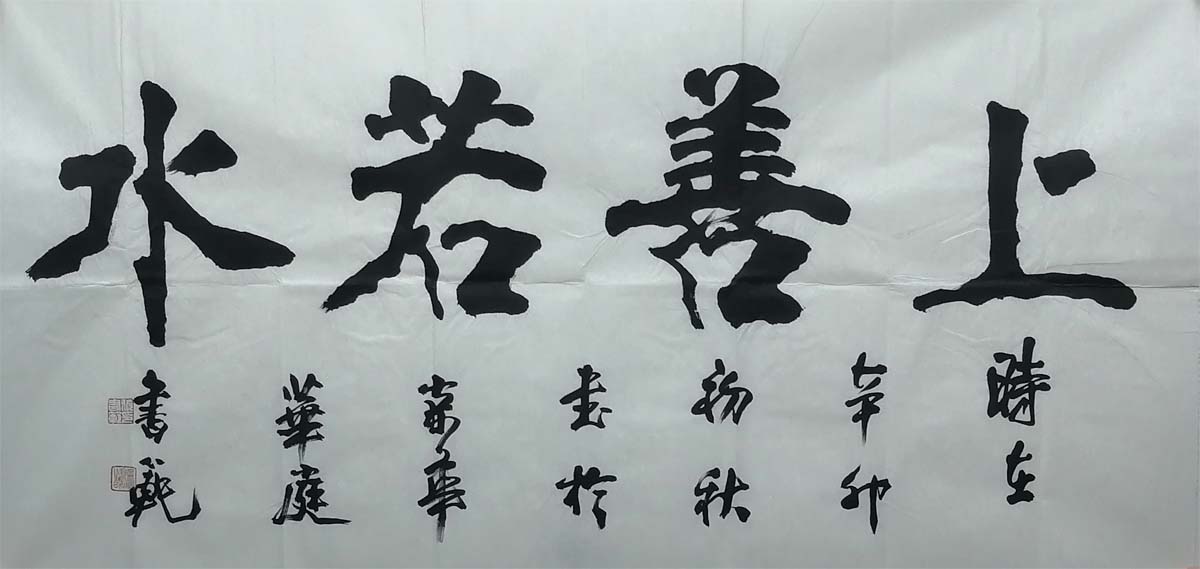 上善若水
時在
辛卯
初秋
書於
華
華庭
書範